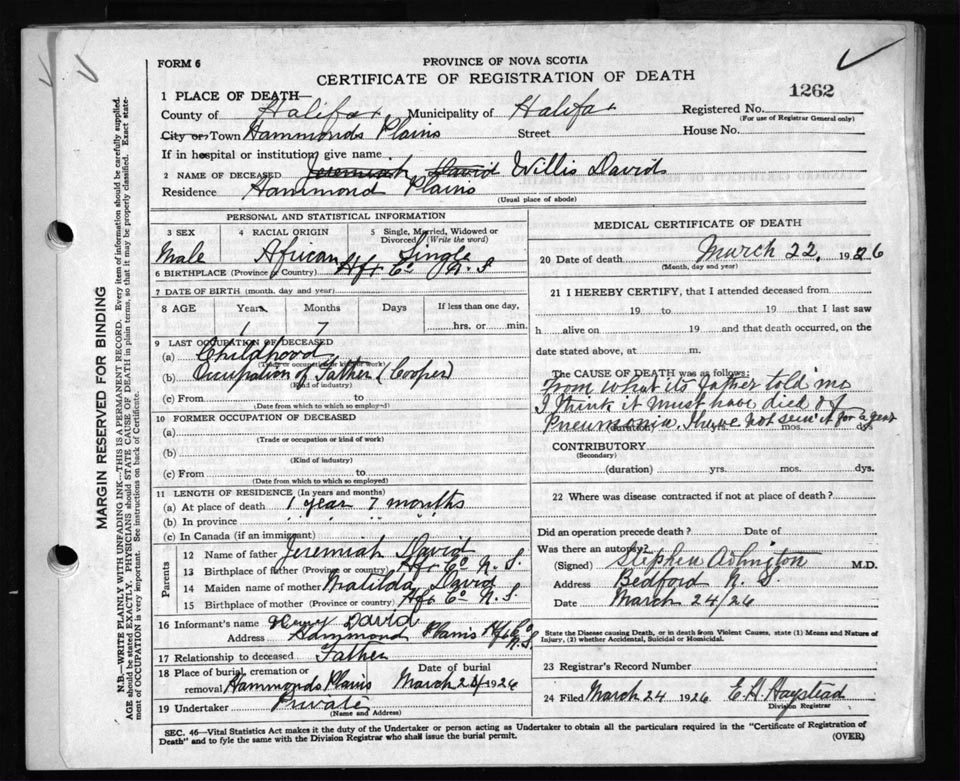 FORM 6
PROVINCE OF NOVA SCOTIA
CERTIFICATE OF REGISTRATION OF DEATH
1262
1 PLACE OF DEATH—
County of Halifax, Municipality of Halifax Registered No.
(For use of Registrar General only)
City or Town Hammonds Plains Street House No.
If in hospital or institution give name
2 NAME OF DECEASED Jeremiah David Willis David
Residence Hammond Plains
(Usual place of abode)
PERSONAL AND STATISTICAL INFORMATION
3 SEX 4 RACIAL ORIGIN 5 Single, Married, Widowed or Divorced (Write the word)
Male African Single
6 BIRTHPLACE (Province or Country) Hfx Co N. S
7 DATE OF BIRTH (month, day and year)
8 AGE Years Months Days If less than one day,
1 7 hrs. or min.
9 LAST OCCUPATION OF DECEASED
(a) Childhood
(Trade or occupation or kind of work)
(b) Occupation of Father (Cooper)
(Kind of industry)
(c) From to
(Date from which to which so employed)
10 FORMER OCCUPATION OF DECEASED
(a)
(Trade or occupation or kind of work)
(b)
(Kind of industry)
(c) From to
(Date from which to which so employed)
11 LENGTH OF RESIDENCE (In years and months)
(a) At place of death 1 year 7 months
(b) In province " " " "
(c) In Canada (if an immigrant)
Parents
12 Name of father Jeremiah David
13 Birthplace of father (Province or country) Hfx Co N. S.
14 Maiden name of mother Matilda David
15 Birthplace of mother (Province or country) Hfx Co N. S
16 Informant's name David
Address Hammond Plains Hfx Co N. S.
17 Relationship to deceased Father
18 Place of burial, cremation or removal Hammonds Plains Date of burial March 1926
19 Undertaker Private
(Name and Address)
MEDICAL CERTIFICATE OF DEATH
20 Date of death March 22, 1926
(Month, day and year)
21 I HEREBY CERTIFY, that I attended deceased from
19 to 19 that I last saw
h alive on 19 and that death occurred, on the
date stated above, at m.
The CAUSE OF DEATH was as follows:
From what its father told me
I think it must have died of
Pneumonia. I have not seen it for a year
(duration) yrs. mos. dys.
CONTRIBUTORY
(Secondary)
(duration) yrs. mos. dys.
22 Where was disease contracted if not at place of death?
Did an operation precede death? Date of
Was there an autopsy?
(Signed) Stephen Adlington M.D.
Address Bedford N. S.
Date March 24/26
State the Disease causing Death, or in death from Violent Causes, state (1) Means and Nature of Injury, (2) whether Accidental, Suicidal or Homicidal.
23 Registrar's Record Number
24 Filed March 24 1926 E. H. Haystead
Division Registrar
SEC. 46—Vital Statistics Act makes it the duty of the Undertaker or person acting as Undertaker to obtain all the particulars required in the "Certificate of Registration of
Death" and to fyle the same with the Division Registrar who shall issue the burial permit.
(OVER)
MARGIN RESERVED FOR BINDING
N.B.—WRITE PLAINLY WITH UNFADING INK—THIS IS A PERMANENT RECORD. Every item of information should be carefully supplied.
AGE should be stated EXACTLY. PHYSICIANS should STATE CAUSE OF DEATH in plain terms, so that it may be properly classified. Exact statement
of OCCUPATION is very important. See instructions on back of Certificate.